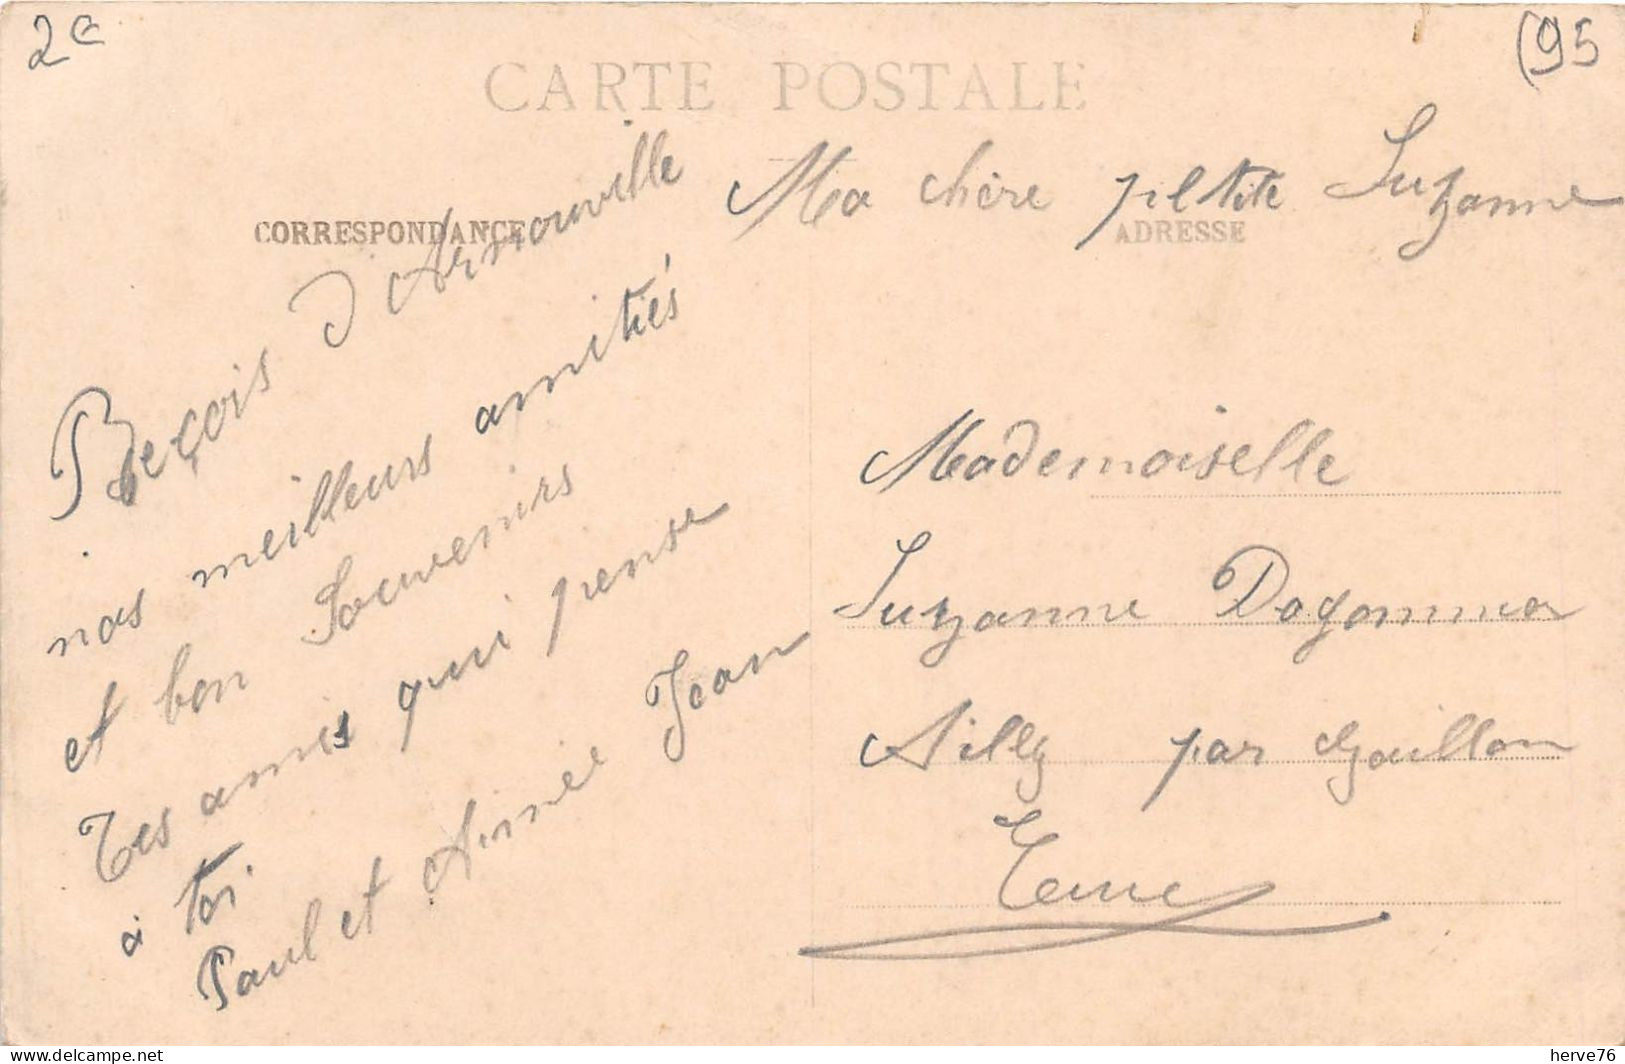 2e
(95
CARTE POSTALE
CORRESPONDANCE
ADRESSE
Ma chère petite Suzanne
Reçois d'Arnouville
nos meilleurs amitiés
et bon Souvenirs
Tes amis qui pense
à toi
Paul et Aimée Jean
Mademoiselle
Suzanne Dagommer
Ailly par Gaillon
Eure
herve76